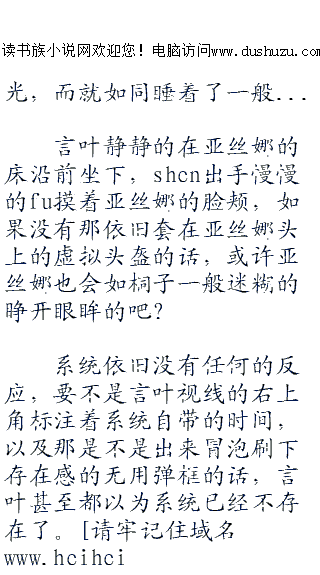 读书族小说网欢迎您！电脑访问www.dushuzu.com
光，而就如同睡着了一般...
言叶静静的在亚丝娜的
床沿前坐下，shcn出手慢慢
的fu摸着亚丝娜的脸颊，如
果没有那依旧套在亚丝娜头
上的虚拟头盔的话，或许亚
丝娜也会如桐子一般迷糊的
睁开眼眸的吧？
系统依旧没有任何的反
应，要不是言叶视线的右上
角标注着系统自带的时间，
以及那是不是出来冒泡刷下
存在感的无用弹框的话，言
叶甚至都以为系统已经不存
在了。[请牢记住域名
www.hcihci